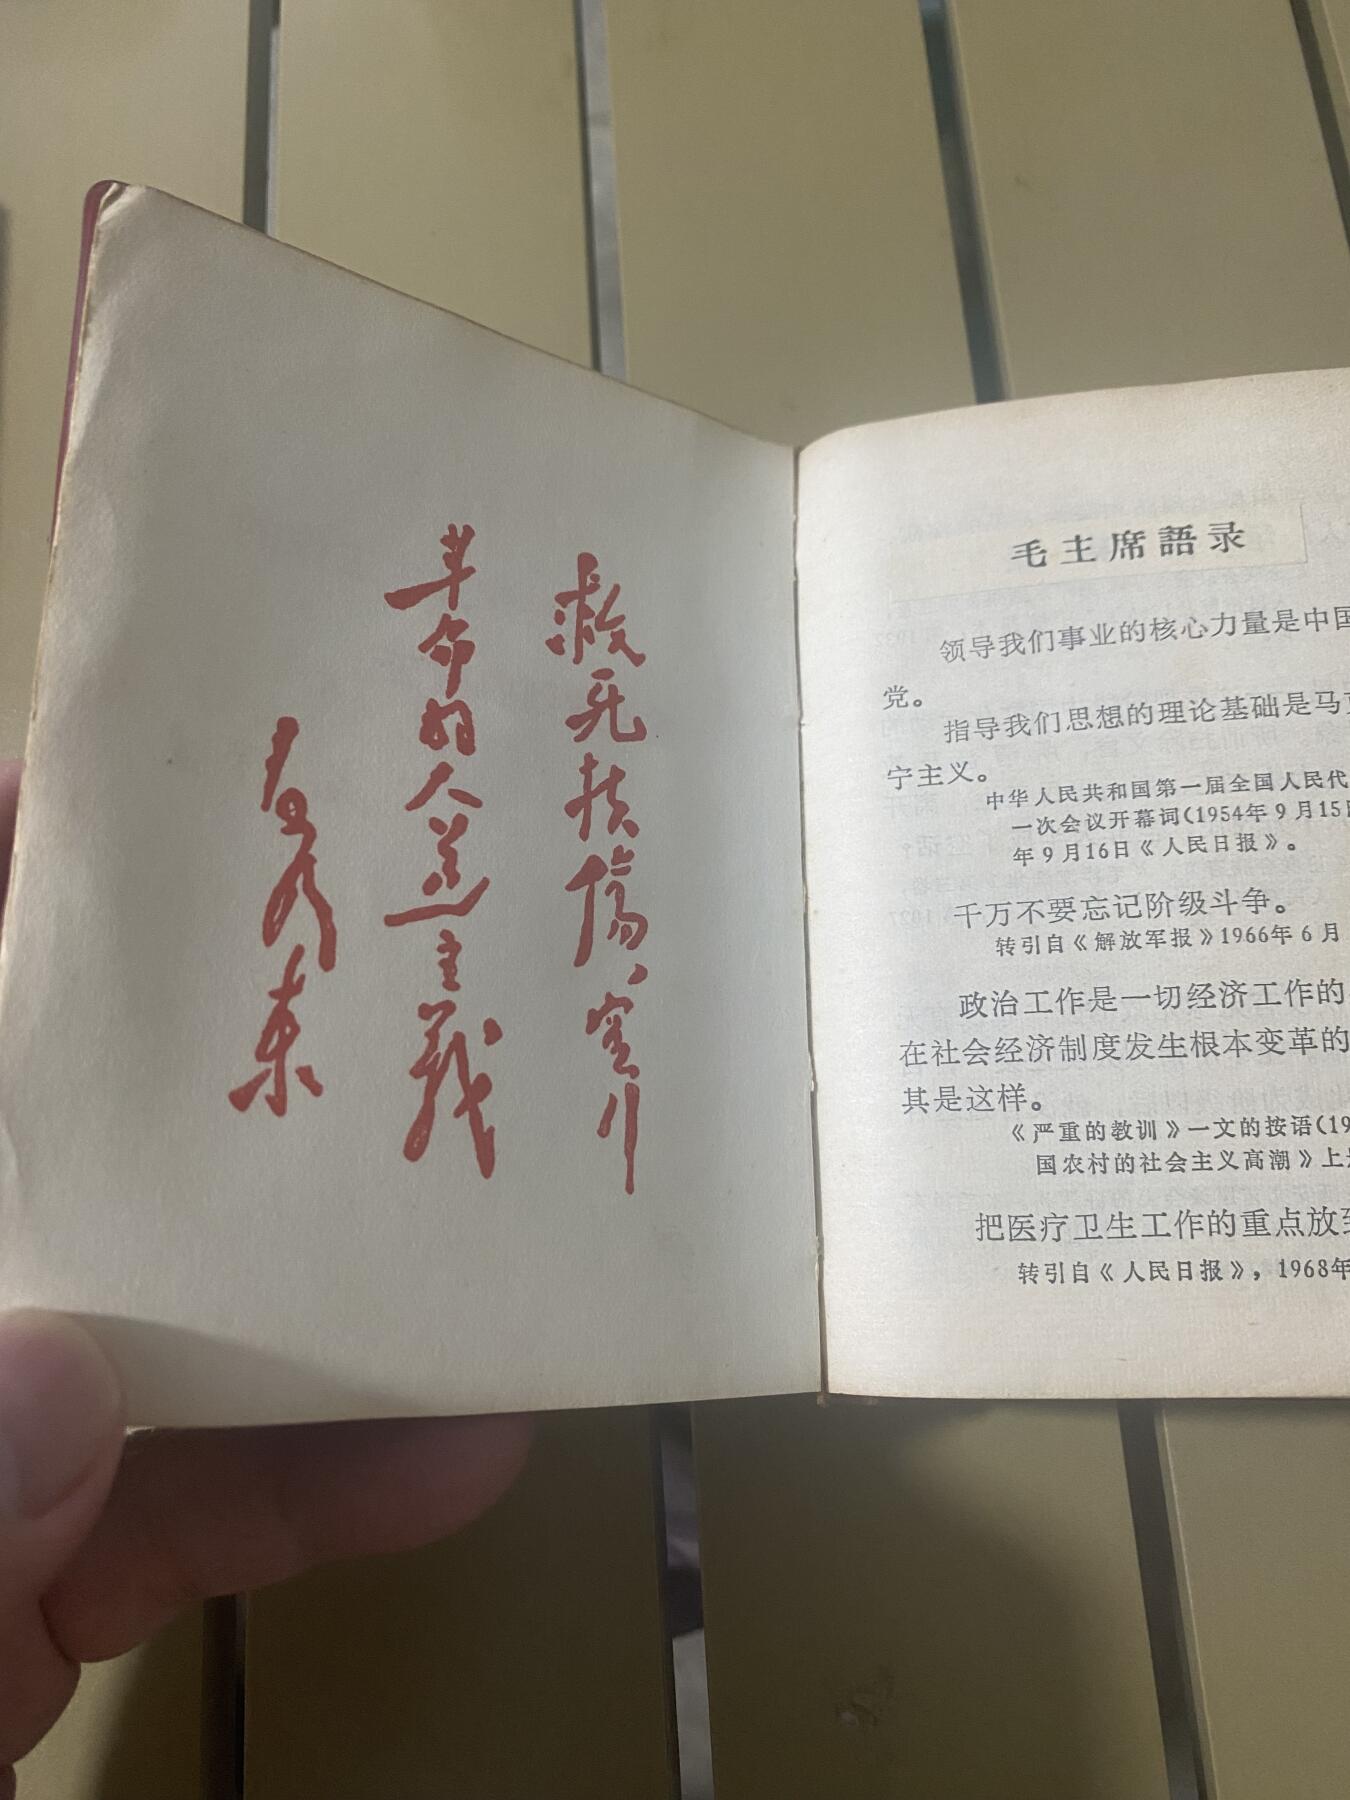 救死扶傷、实行
革命的人道主義
毛泽东
毛主席語录
领导我们事业的核心力量是中国
党。
指导我们思想的理论基础是马
宁主义。
中华人民共和国第一届全国人民代
一次会议开幕词(1954年9月15日
年9月16日《人民日报》。
千万不要忘记阶级斗争。
转引自《解放军报》1966年6月
政治工作是一切经济工作的
在社会经济制度发生根本变革的
其是这样。
《严重的教训》一文的按语(19
国农村的社会主义高潮》上
把医疗卫生工作的重点放到
转引自《人民日报》,1968年